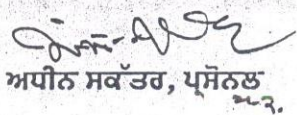 ਅਧੀਨ ਸਕੱਤਰ, ਪ੍ਰਸੋਨਲ